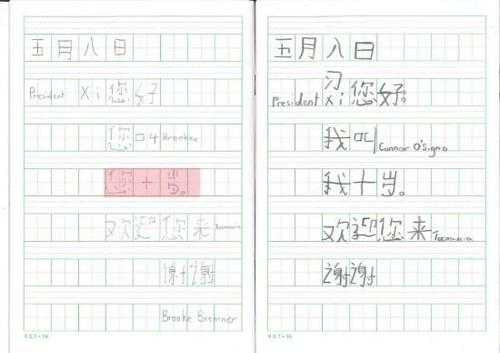 五月八日
President Xi 您好
您叫 Brooke
您十岁。
欢迎您来 Tasmania
谢谢
Brooke Bremner
五月八日
习
President Xi 您好。
我叫 Connor
我十岁。
欢迎您来 Tasmania
谢谢